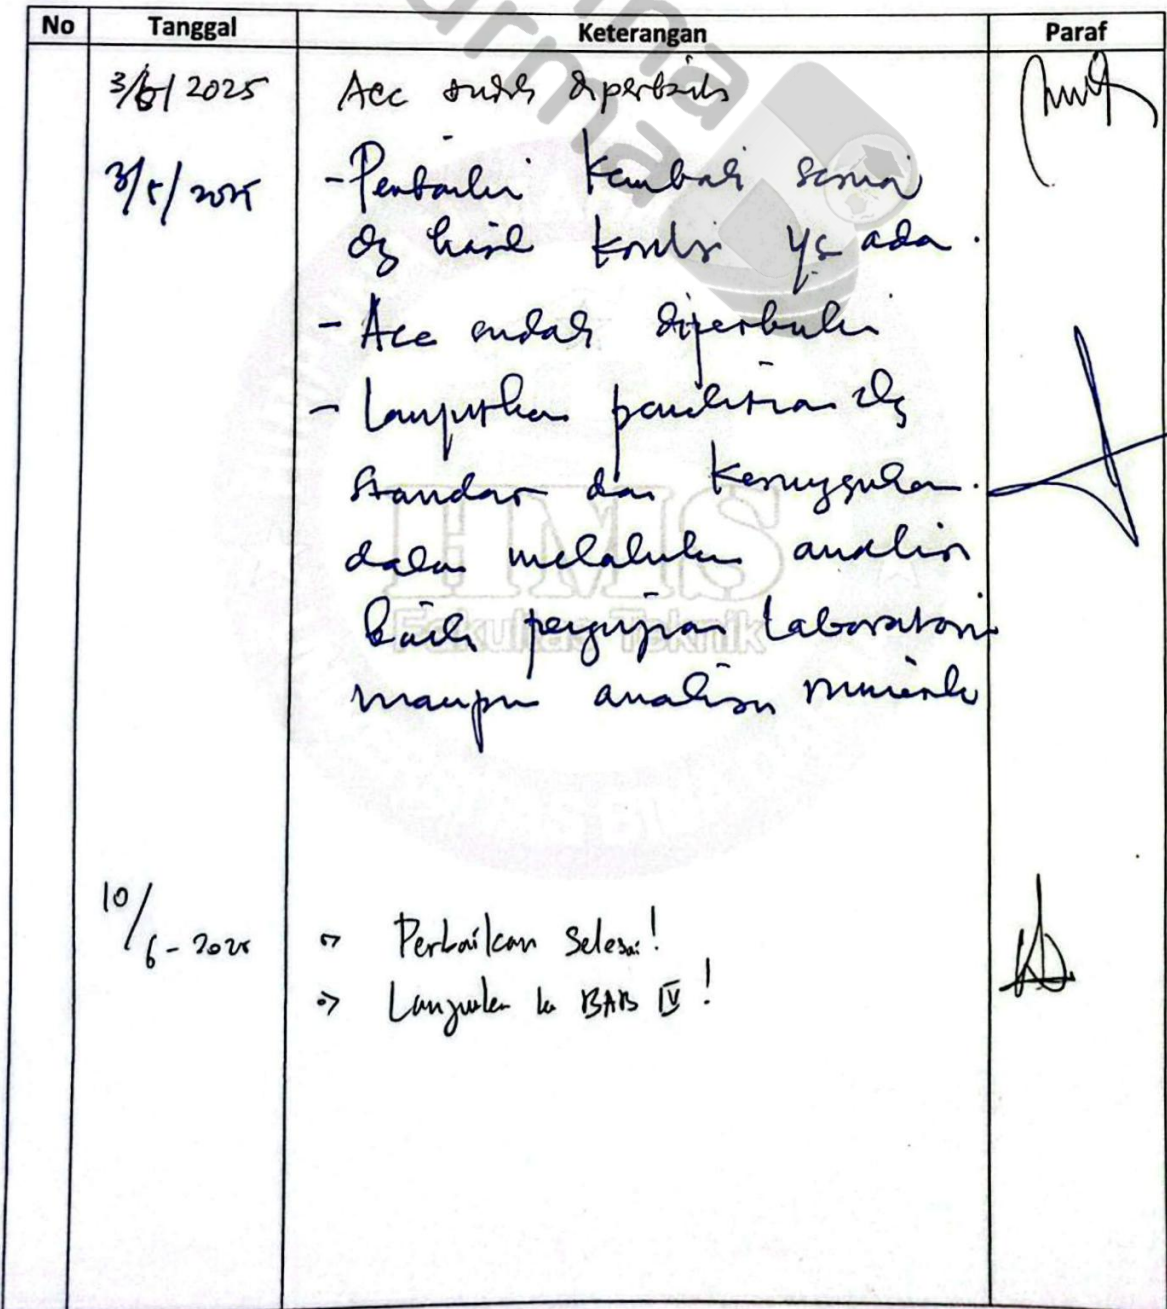 No Tanggal Keterangan Paraf
3/6/2025 Acc sudah diperbaiki
3/5/2025 - Perbaiki kembali sesuai
dg hasil koreksi yg ada.
- Acc sudah diperbaiki
- Lanjutkan penelitian dg
standar dan kesungguhan
dalam melakukan analisa
baik pengujian laboratorium
maupun analisa numerik
10/6-2025 => Perbaikan Selesai!
=> Lanjutkan ke BAB IV!
HMS
Fakultas Teknik